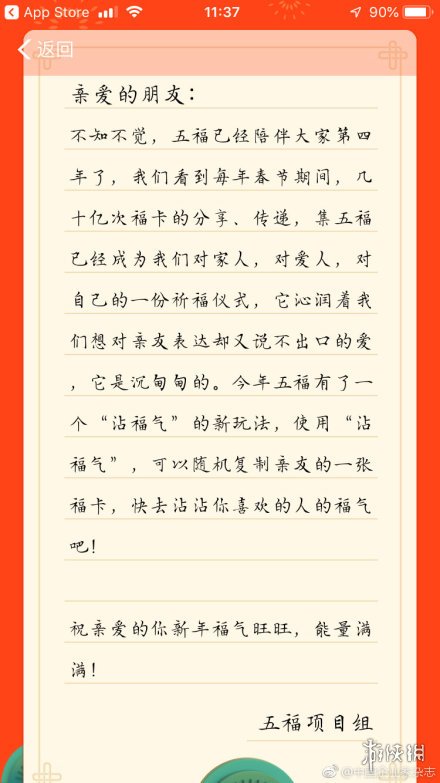 App Store
11:37
90%
返回
亲爱的朋友：
不知不觉，五福已经陪伴大家第四
年了，我们看到每年春节期间，几
十亿次福卡的分享、传递，集五福
已经成为我们对家人，对爱人，对
自己的一份祈福仪式，它沁润着我
们想对亲友表达却又说不出口的爱
，它是沉甸甸的。今年五福有了一
个“沾福气”的新玩法，使用“沾
福气”，可以随机复制亲友的一张
福卡，快去沾沾你喜欢的人的福气
吧！
祝亲爱的你新年福气旺旺，能量满
满！
五福项目组
游侠网